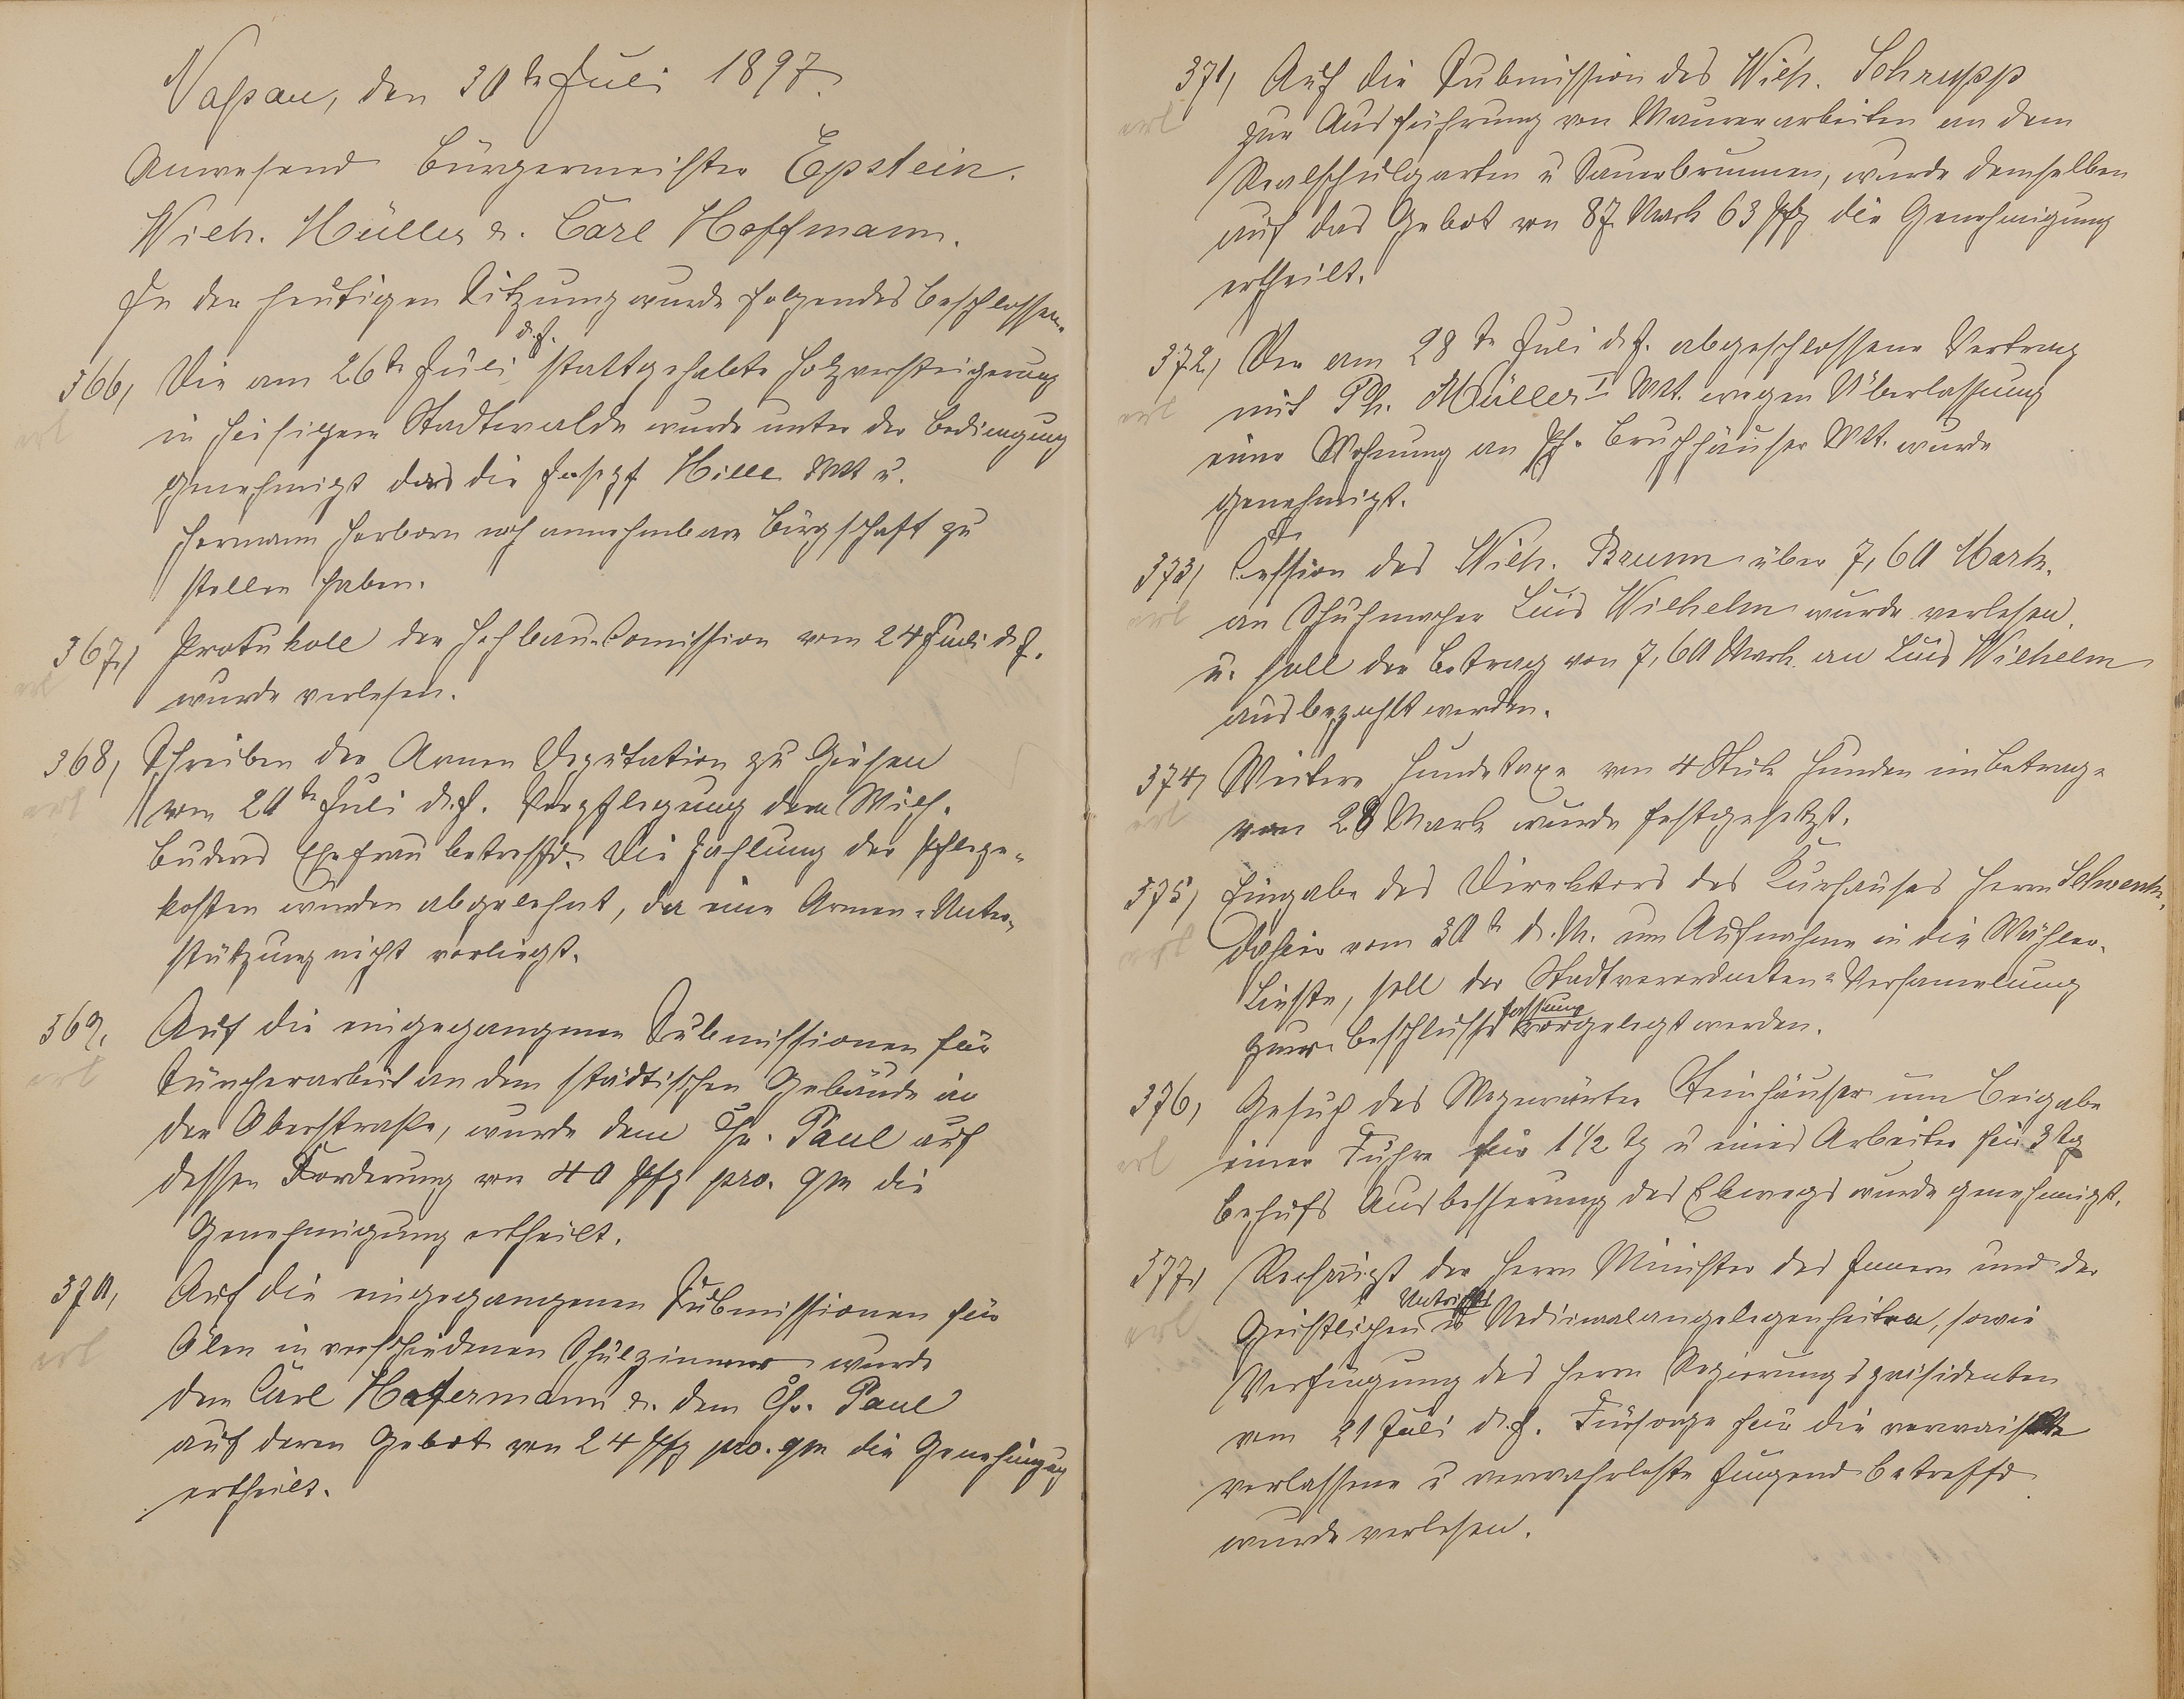 Nassau, den 30te Juli 1897.
Anwesend Bürgermeister Epstein.
Wilh. Müller u. Carl Hoffmann.
In der heutigen Sitzung wurde folgendes beschlossen.
d. J.
366, Die am 26te Juli stattgehabte Holzversteigerung
erl
in hiesigem Stadtwalde wurde unter der Bedingung
genehmigt das die Joseph Hille Wt u.
Hermann Herborn noch annehmbare Bürgschaft zu
stellen haben.
367,) Protukoll der Hochbau-Comission vom 24 Juli d. J.
erl
wurde verlesen.
368, Schreiben der Armen Deputation zu Giesen
erl
vom 20te Juli d. J. Verpflegung der Wilh.
Buderus Ehefrau betreffd. Die Zahlung der Pflege-
kosten wurden abgelehnt, da eine Armen-Unter-
stützung nicht vorliegt.
369. Auf die eingegangenen Submissionen für
erl
Tüncherarbeit an dem städtischen Gebäude in
der Oberstraße, wurde dem Chr. Paul auf
dessen Forderung von 40 Pfg pro. qm die
Genehmigung ertheilt.
370, Auf die eingegangenen Submissionen für
erl
Ölen in verschiedenen Schulzimmer wurde
dem Carl Hafermann u. dem Chr. Paul
auf deren Gebot von 24 Pfg pro. qm die Genehmigung
ertheilt.
371, Auf die Submission des Wilh. Schrupp
erl
zur Ausführung von Maurerarbeiten an dem
Realschulgarten u Sauerbrunnen, wurde demselben
auf das Gebot von 87 Mark 63 Pfg die Genehmigung
ertheilt.
372, Der am 28te Juli d. J. abgeschlossene Vertrag
erl
mit Ph. Müller I Wt. wegen Überlassung
einer Wohnung an Ph. Bruchhäuser Wt. wurde
genehmigt.
373, Cession des Wilh. Brunn über 7,60 Mark.
erl
an Schuhmacher Luis Wilhelm wurde verlesen.
u. soll der Betrag von 7,60 Mark an Luis Wilhelm
ausbezahlt werden.
374, Weitere Hundetaxe von 4 Stük Hunden im Betrage
erl
von 28 Mark wurde festgesetzt.
375, Eingabe des Direktors des Kurhauses Herrn Schwenk,
erl
dahier vom 30te d. M. um Aufnahme in die Wähler-
Lieste, soll der Stadtverordneten-Versammlung
fassung
zur Beschluss vorgelegt werden.
376, Gesuch des Wegewärter Steinhäuser um Beigabe
erl
einer Fuhre für 1 1/2 Tg u eines Arbeiter für 3 Tg
behufs Ausbesserung des wurde genehmigt.
377,) der Herrn Minister des Innern und der
Unterichts
erl
Geistlichen u Medicinalangelegenheiten, sowie
Verfügung des Herrn Regierungspräsidenten
vom 21 Juli d. J. Fürsorge für die verwaiste
verlassene u verwahrloste Jugend betreffd
wurde verlesen.